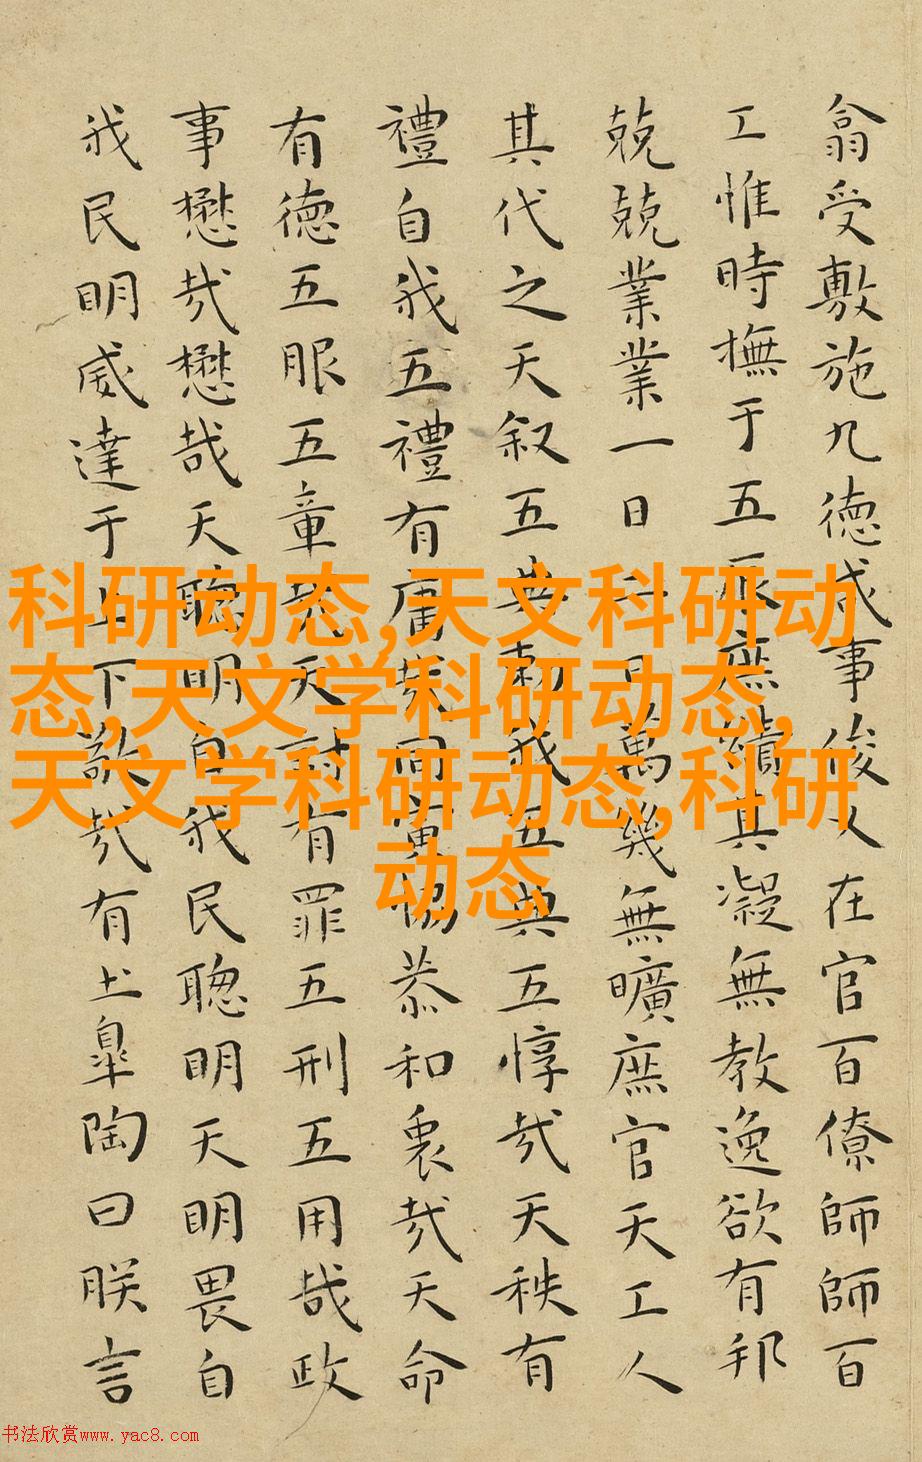 翕受敷施九德咸事俊乂在官百僚師師百
工惟時撫于五辰庶績其凝無教逸欲有邦
兢兢業業一日二日萬幾無曠庶官天工人
其代之天叙五典勅我五典五惇哉天秩有
禮自我五禮有庸哉同寅協恭和衷哉天命
有德五服五章哉天討有罪五刑五用哉政
事懋哉懋哉天聰明自我民聰明天明畏自
我民明威達于上下敬哉有土皐陶曰朕言
科研动态,天文科研动
态,天文学科研动态,
天文学科研动态,科研
动态
书法欣赏www.yac8.com